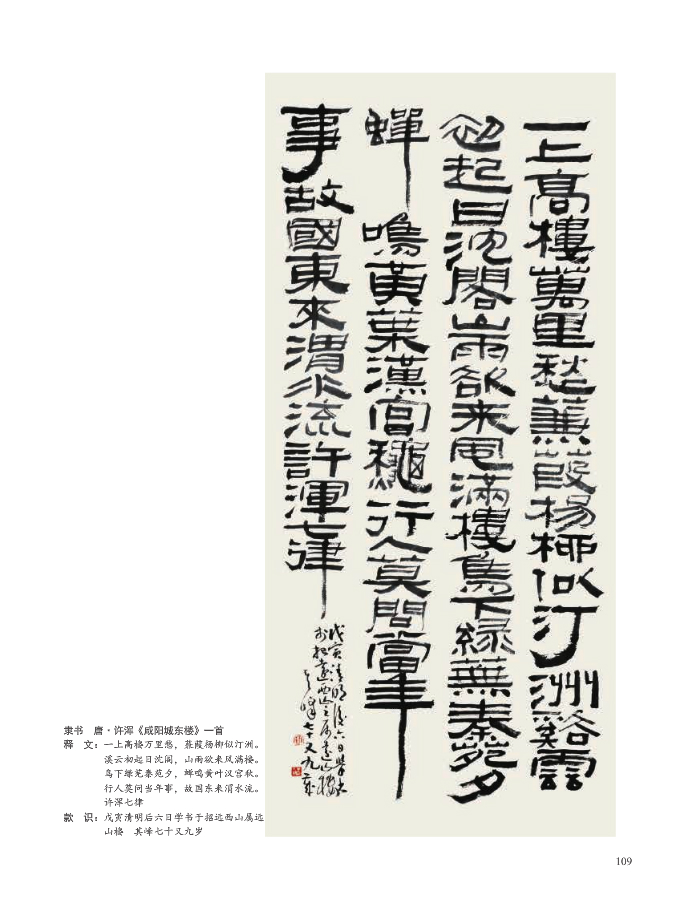 一上高樓萬里愁蒹葭楊柳似汀洲谿雲
初起日沈閣山雨欲来風滿樓鳥下緑蕪秦苑夕
蟬鳴黃葉漢宮穐行人莫問當年
事故國東來渭水流許渾七律
戊寅清明後六日學書
於招遠西山之屬遠山樓
其峰七十又九歲
隶书　唐·许浑《咸阳城东楼》一首
释　文：一上高楼万里愁，蒹葭杨柳似汀洲。
溪云初起日沈阁，山雨欲来风满楼。
鸟下绿芜秦苑夕，蝉鸣黄叶汉宫秋。
行人莫问当年事，故国东来渭水流。
许浑七律
款　识：戊寅清明后六日学书于招远西山属远
山楼　其峰七十又九岁
109